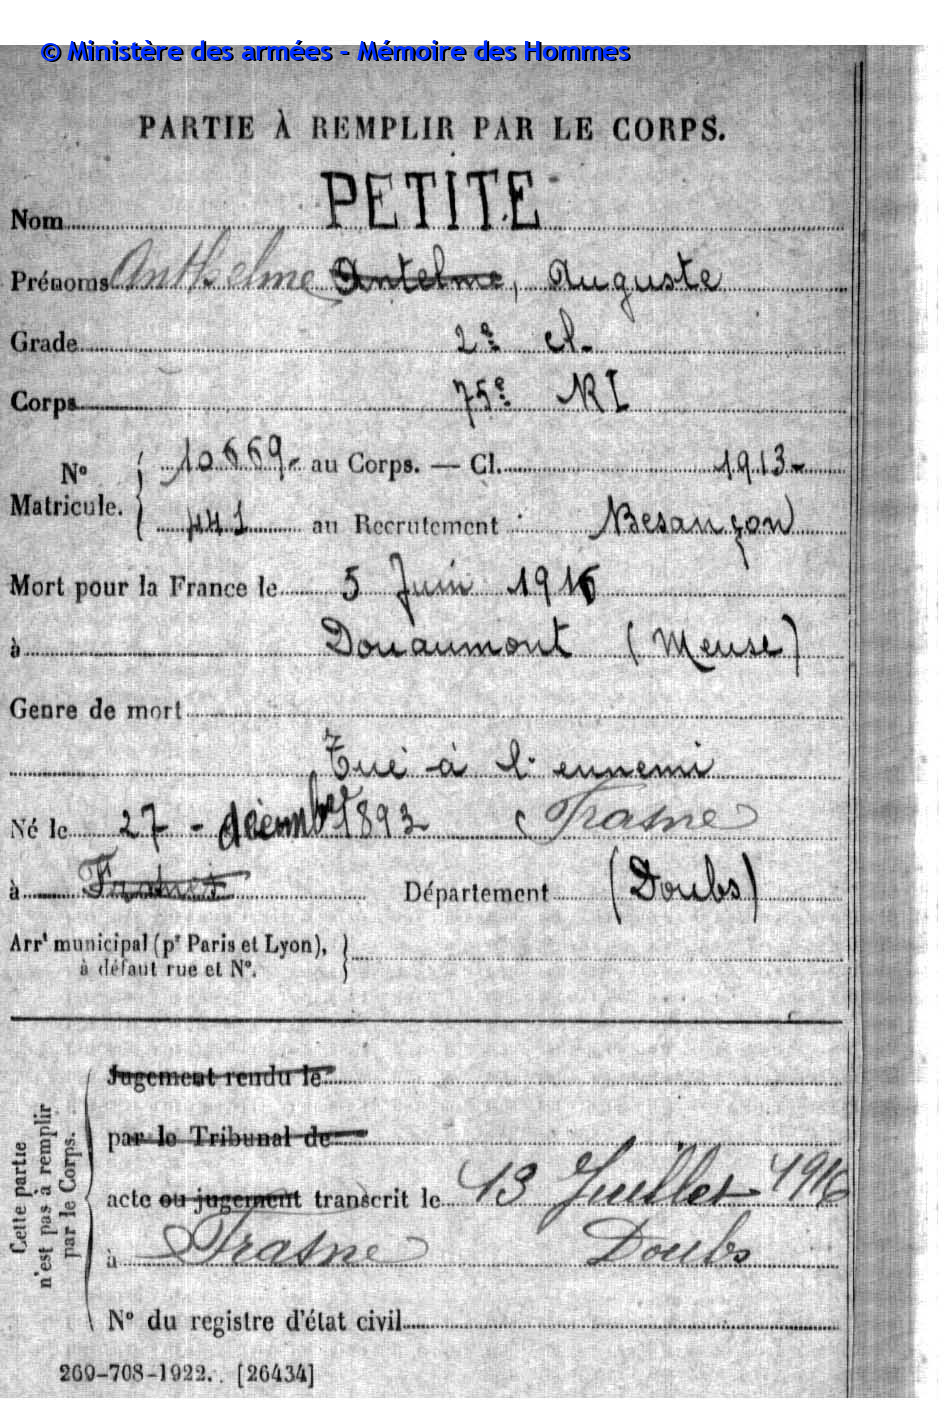 © Ministère des armées - Mémoire des Hommes
PARTIE À REMPLIR PAR LE CORPS.
Nom PETITE
Prénoms Anthelme Antelme, Auguste
Grade 2e cl.
Corps 75e RI
N° Matricule. 10669 - au Corps. — Cl. 1913 -
441 au Recrutement Besançon
Mort pour la France le 5 Juin 1916
à Douaumont (Meuse)
Genre de mort
Tué à l'ennemi
Né le 27 - décembre 1893 (Frasne
à Département (Doubs)
Arrt municipal (pr Paris et Lyon),
à défaut rue et N°.
Jugement rendu le
par le Tribunal de
acte ou jugement transcrit le 13 Juillet 1916
à Frasne Doubs
N° du registre d'état civil
Cette partie
n'est pas à remplir
par le Corps.
269-708-1922. [26434]